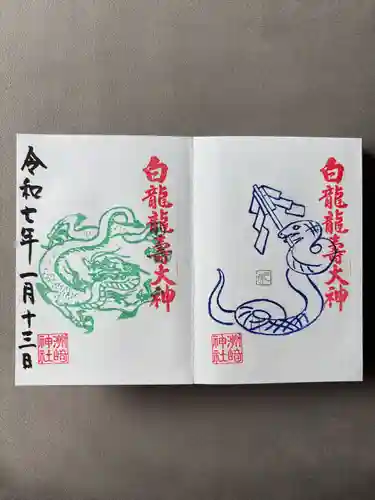 白龍龍壽大神
令和七年一月十三日
洲崎神社
白龍龍壽大神
洲崎神社